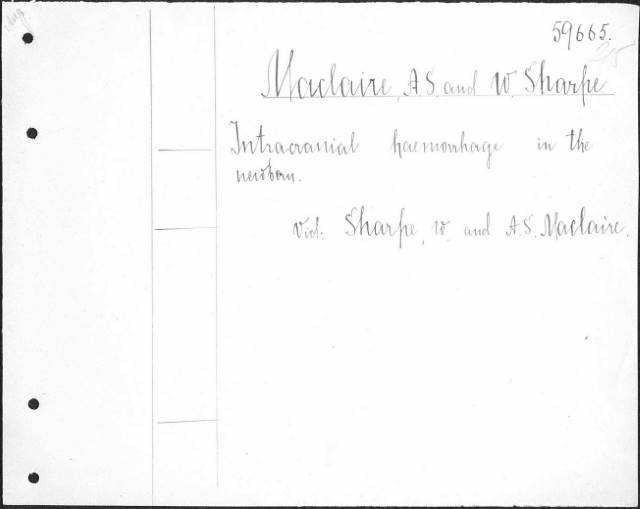 59665.
Maclaire, A.S. and W. Sharpe
Intracranial haemorrhage in the
newborn.
Vid: Sharpe, W. and A.S. Maclaire.